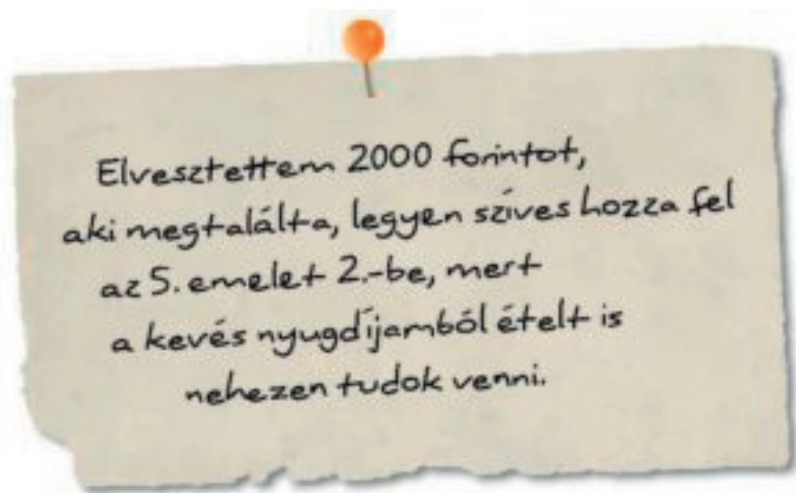 Elvesztettem 2000 forintot,
aki megtalálta, legyen szíves hozza fel
az 5. emelet 2.-be, mert
a kevés nyugdíjamból ételt is
nehezen tudok venni.